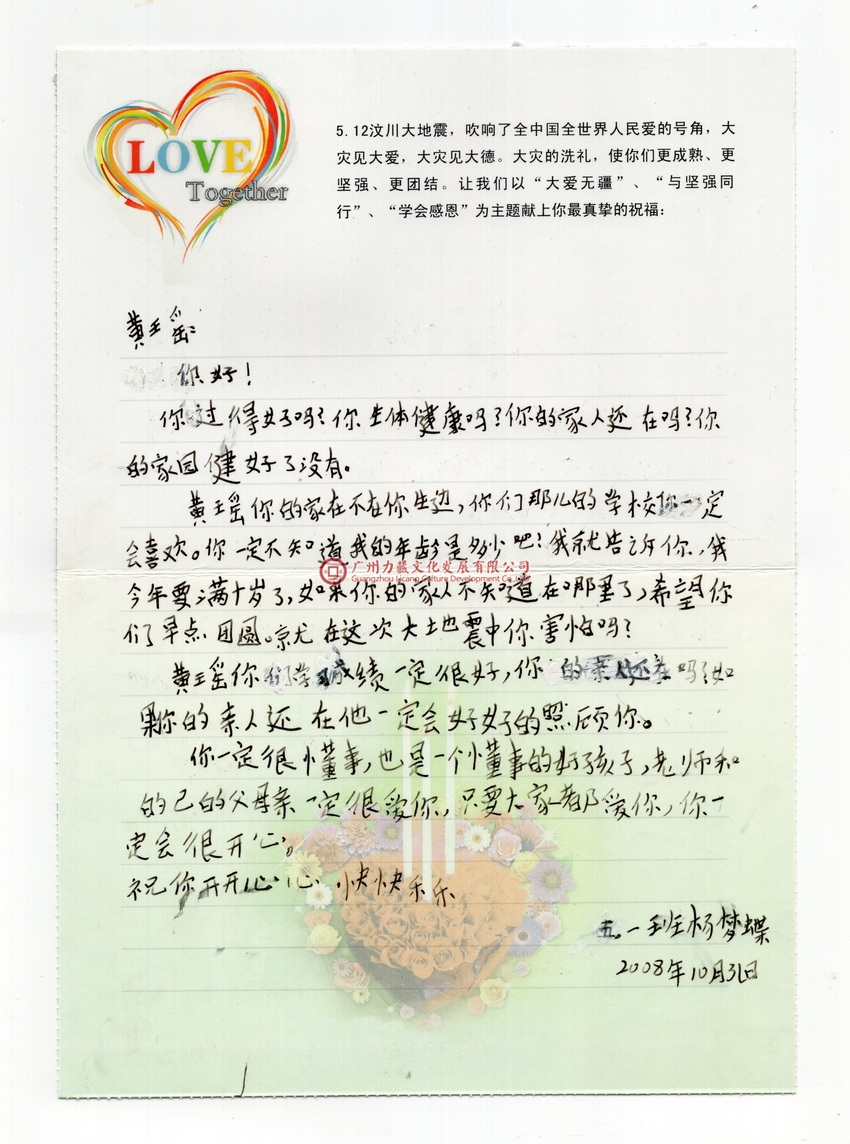 LOVE
Together
5.12汶川大地震，吹响了全中国全世界人民爱的号角，大
灾见大爱，大灾见大德。大灾的洗礼，使你们更成熟、更
坚强、更团结。让我们以“大爱无疆”、“与坚强同
行”、“学会感恩”为主题献上你最真挚的祝福：
黄玉瑶：
你好！
你过得好吗？你生体健康吗？你的家人还在吗？你
的家园健好了没有。
黄玉瑶你的家在不在你生边，你们那儿的学校你一定
会喜欢。你一定不知道我的年龄是多少吧？我就告诉你，我
广州力藏文化发展有限公司
Guangzhou Licang Culture Development Co.,Ltd
今年要满十岁了，如果你的家人不知道在哪里了，希望你
们早点团圆。就在这次大地震中你害怕吗？
黄玉瑶你们学成绩一定很好，你的亲人还在吗？如
果你的亲人还在他一定会好好的照顾你。
你一定很懂事，也是一个懂事的好孩子，老师和
的己的父母亲一定很爱你，只要大家都爱你，你一
定会很开心。
祝你开开心心 快快乐乐
五。一班杨梦蝶
2008年10月31日